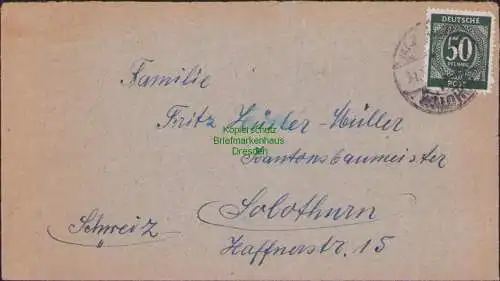 DEUTSCHE
50
PFENNIG
POST
Familie
Fritz Hüsler-Müller
Kopierschutz
Briefmarkenhaus
Dresden
Kantonsbaumeister
Solothurn
Schweiz
Haffnerstr. 15